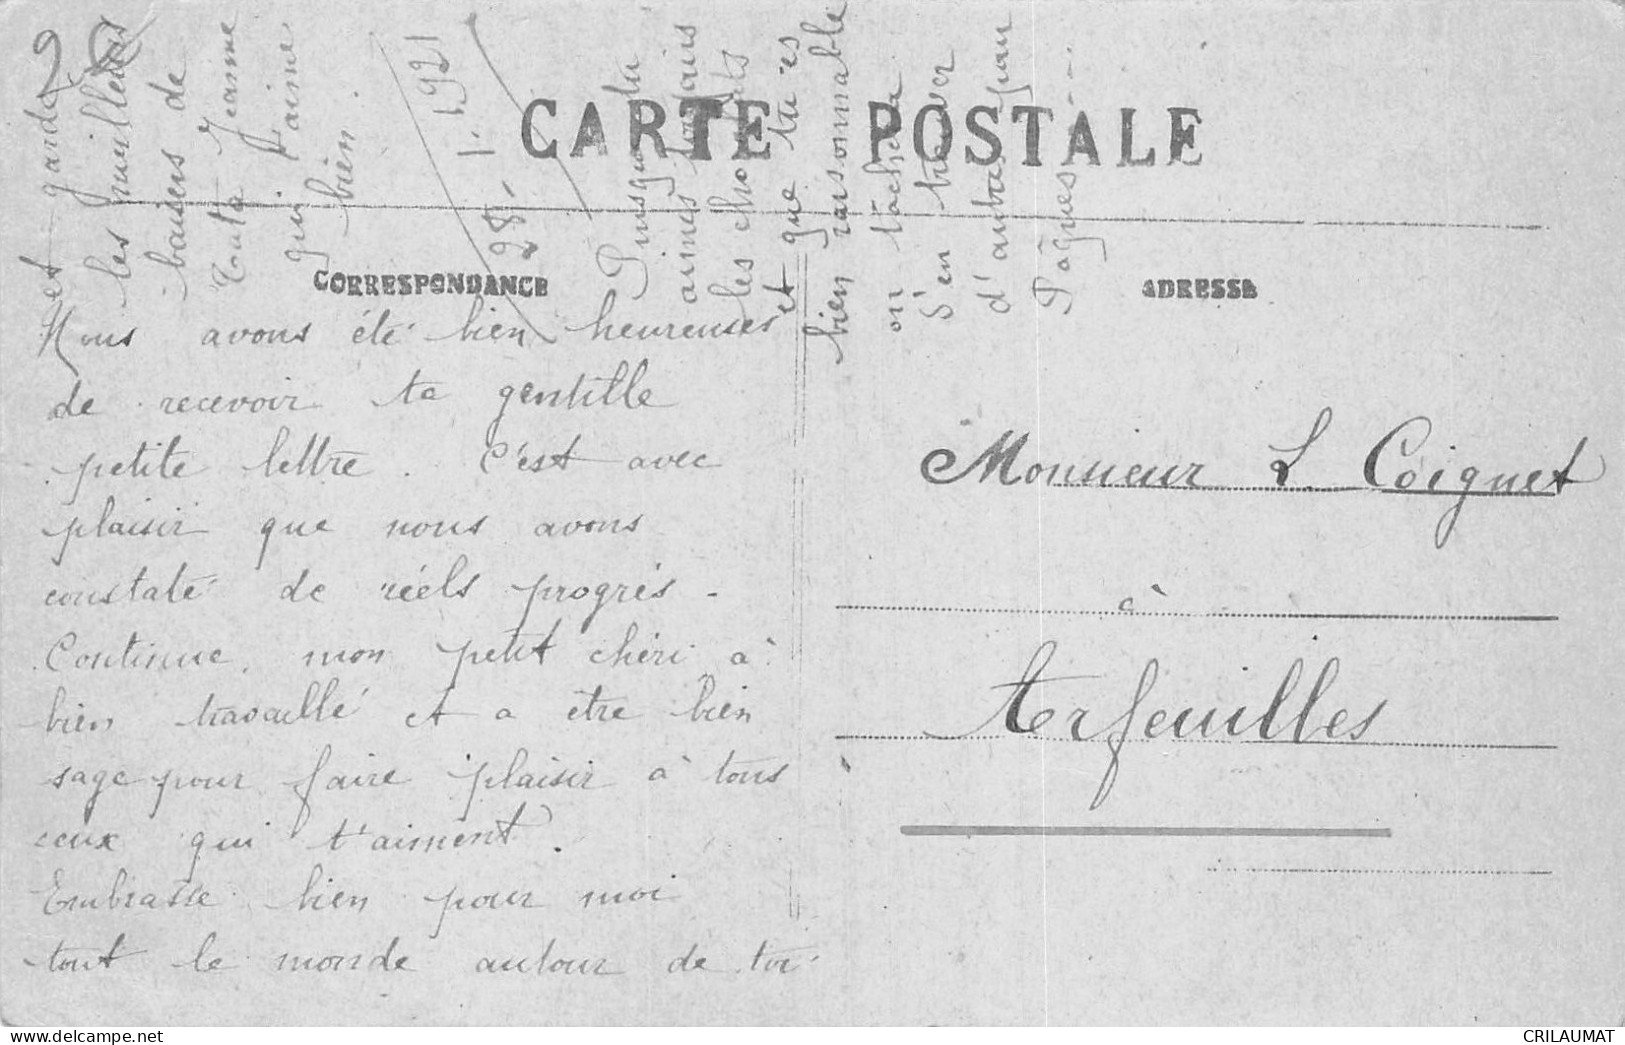 CARTE POSTALE
CORRESPONDANCE
ADRESSE
Nous avons été bien heureuses
de recevoir ta gentille
petite lettre. C'est avec
plaisir que nous avons
constaté de réels progrès -
Continue, mon petit chéri à
bien travaillé et a être bien
sage pour faire plaisir à tous
ceux qui t'aiment.
Embrasse bien pour moi
tout le monde autour de toi
et garde
les meilleurs
baisers de
Tata Jeanne
qui t'aime
bien.
28.1.1921
Puisque tu
aimes
les chocolats
et que tu es
bien raisonnable
on tâchera
d'en trouver
d'autres pour
Pâques ----
Monsieur L. Coignet
à
Arfeuilles
CRILAUMAT